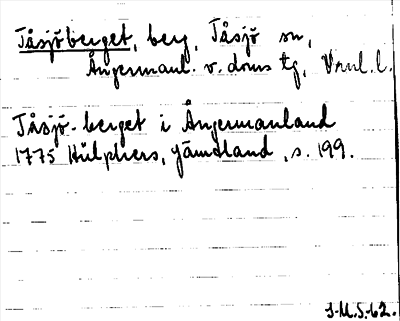 Tåsjöberget, berg, Tåsjö sn,
Ångermanl. v. doms tg, Vrnl. l.
Tåsjö-berget i Ångermanland
1775 Hülphers, Jämtland, s. 199.
J-M.S.-62.